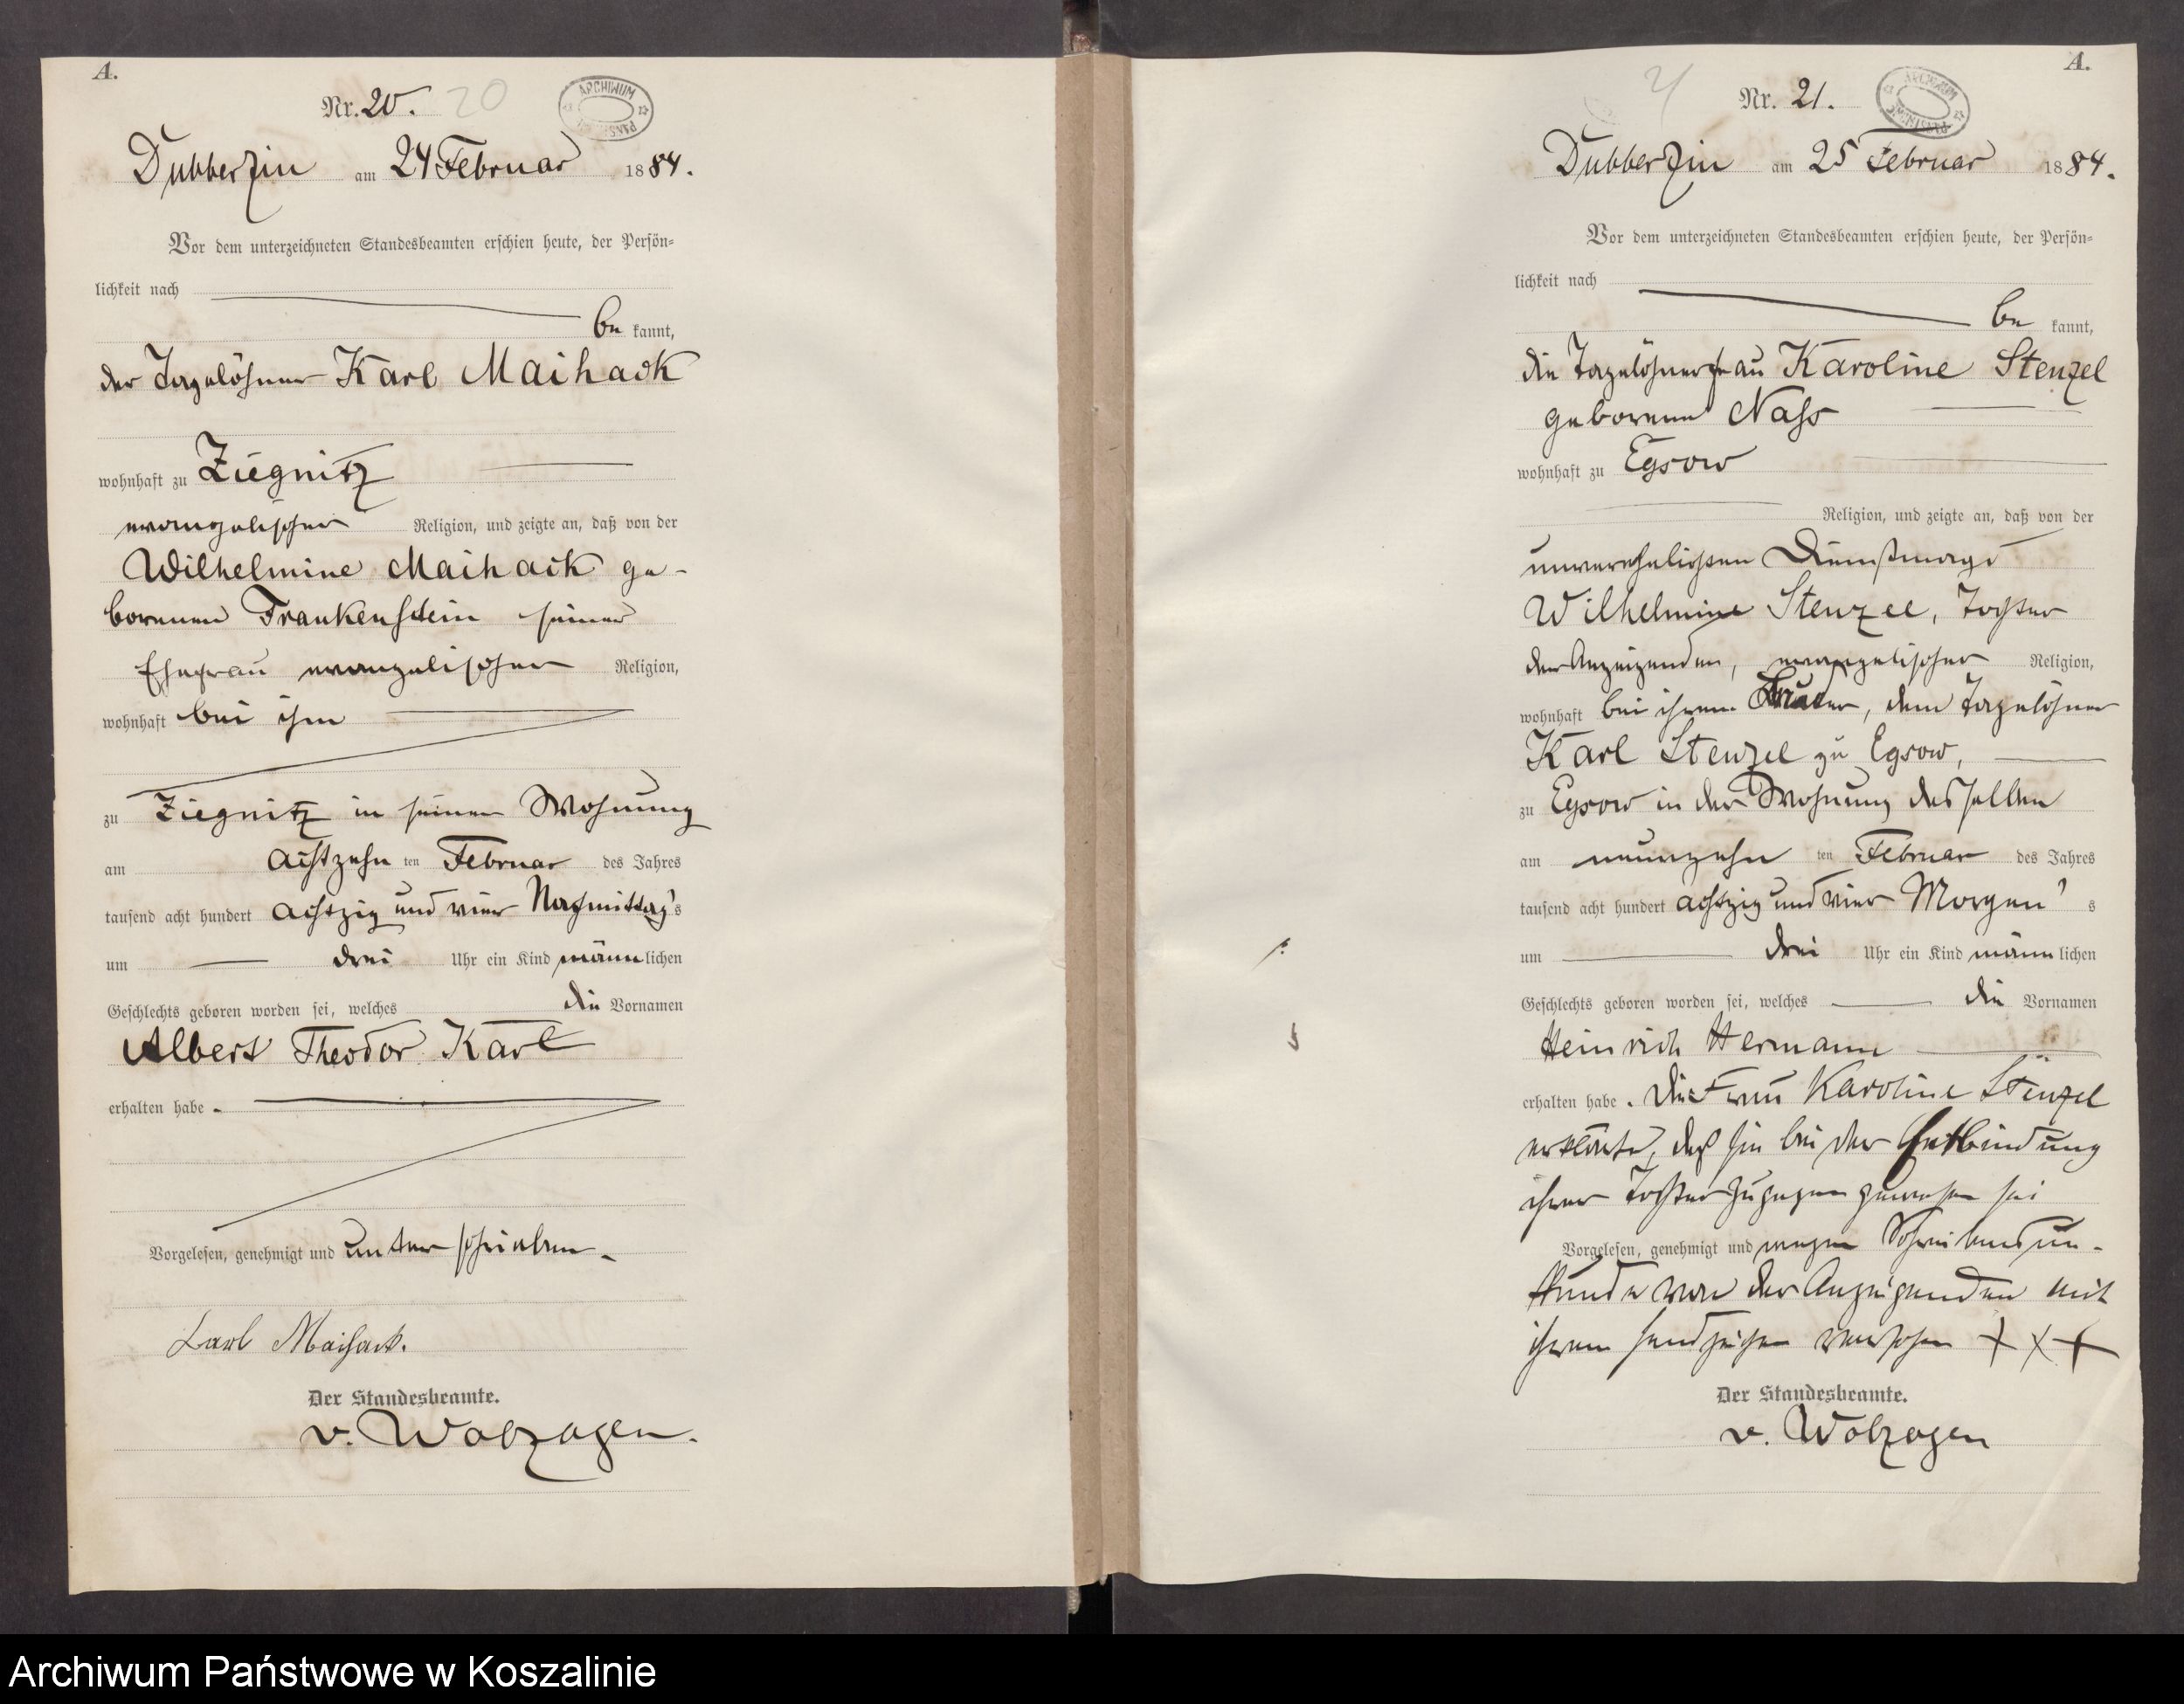 A.
Nr. 20. 20
ARCHIWUM PAŃSTW
Dubberzin am 24 Februar 1884.
Vor dem unterzeichneten Standesbeamten erschien heute, der Persön=
lichkeit nach
be kannt,
der Tagelöhner Karl Maihack
wohnhaft zu Ziegnitz
evangelischer Religion, und zeigte an, daß von der
Wilhelmine Maihack ge-
borenen Frankenstein seiner
Ehefrau evangelischer Religion,
wohnhaft bei ihm
zu Ziegnitz in seiner Wohnung
am achtzehn ten Februar des Jahres
tausend acht hundert achtzig und vier Nachmittag's
um drei Uhr ein Kind männlichen
Geschlechts geboren worden sei, welches die Vornamen
Albert Theodor Karl
erhalten habe.
Vorgelesen, genehmigt und unterschrieben.
Karl Maihack.
Der Standesbeamte.
v. Wolzogen.
A.
21 Nr. 21.
Dubberzin am 25 Februar 1884.
Vor dem unterzeichneten Standesbeamten erschien heute, der Persön=
lichkeit nach
be kannt,
die Tagelöhnerfrau Karoline Stenzel
geborene Nass
wohnhaft zu Egsow
Religion, und zeigte an, daß von der
unverehelichten Dienstmagd
Wilhelmine Stenzel, Tochter
der Anzeigenden, evangelischer Religion,
wohnhaft bei ihrem Bruder, dem Tagelöhner
Karl Stenzel zu Egsow,
zu Egsow in der Wohnung desselben
am neunzehn ten Februar des Jahres
tausend acht hundert achtzig und vier Morgen's
um drei Uhr ein Kind männlichen
Geschlechts geboren worden sei, welches die Vornamen
Heinrich Hermann
erhalten habe. Die Frau Karoline Stenzel
erklärte, daß sie bei der Entbindung
ihrer Tochter zugegen gewesen sei
Vorgelesen, genehmigt und wegen Schreibensun-
kunde von der Anzeigenden mit
ihrem Handzeichen versehen + + +
Der Standesbeamte.
v. Wolzogen
Archiwum Państwowe w Koszalinie